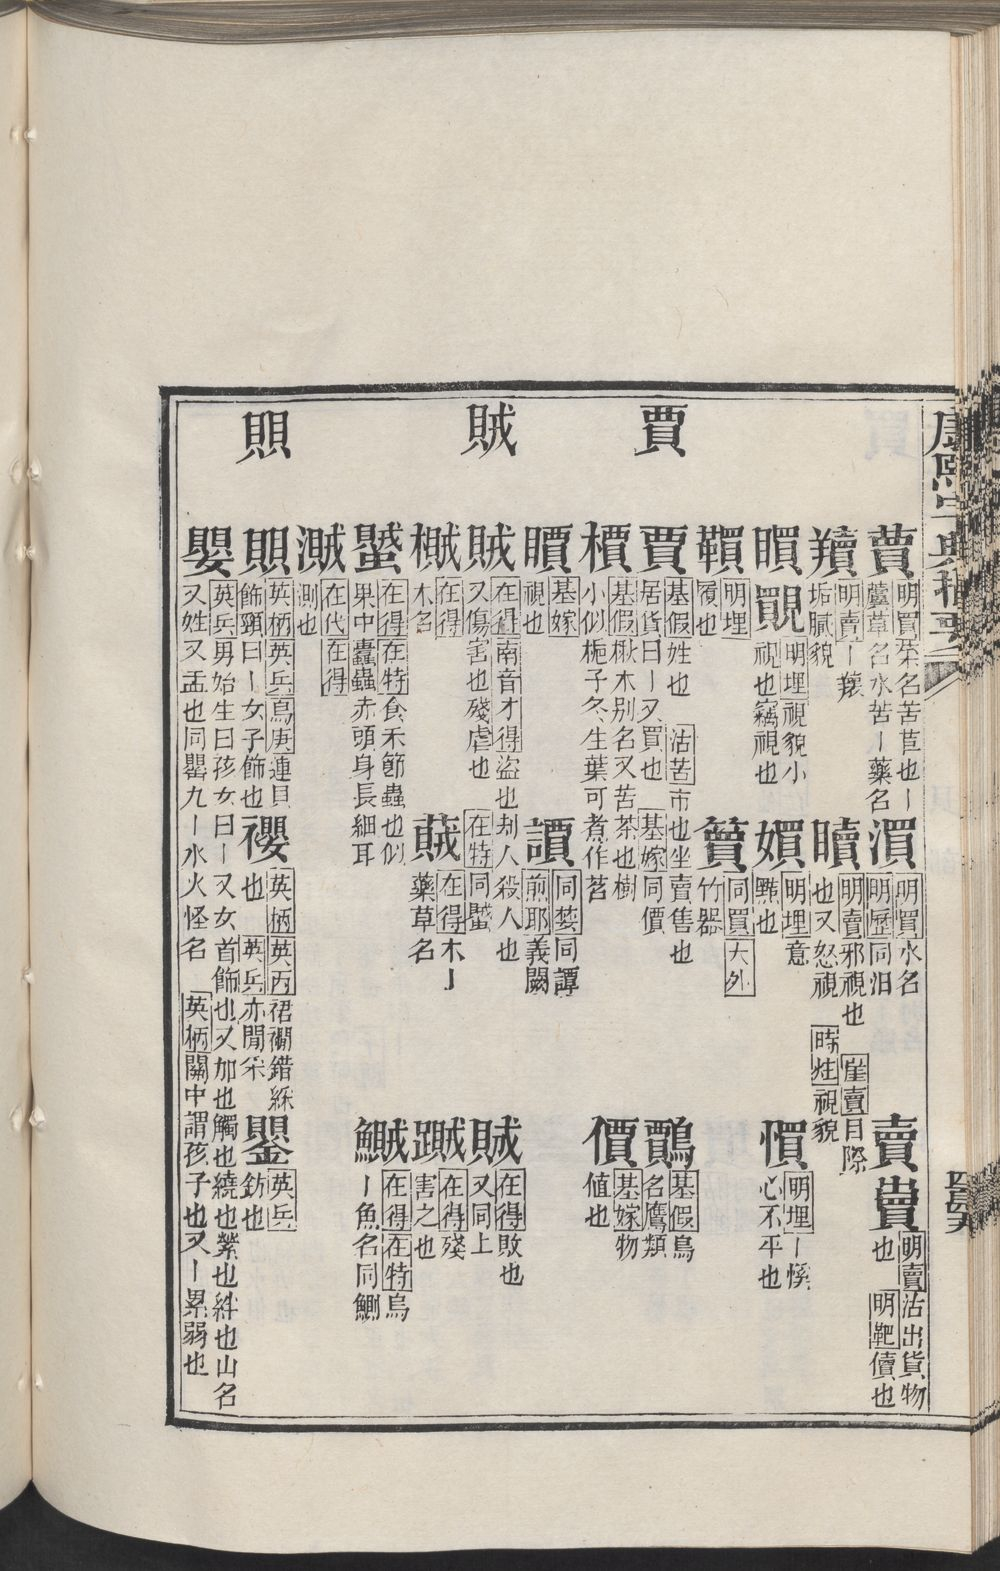 康熙字典撮要
四百五十九
蕒 明買菜名苦苣也丨蘆葦名水苦丨藥名
湏 明買水名明歷同汨
賣 𧷓 明賣沽出貨物也明靶儥也
羵 明賣丨䙡垢膩貌
明賣邪視也崖賣目際也又怒視時烓視貌
覞 明埋視貌小視也竊視也
明埋意黠也
明埋丨慀心不平也
明埋履也
同買大外竹器
賈
賈 基假姓也沽苦市也坐賣售也居貨曰丨又買也基嫁同價
鷶 基假鳥名鷹類
檟 基假楸木别名又苦茶也樹小似梔子冬生葉可煮作茗
價 基嫁物值也
基嫁視也
同婪同譚前耶義闕
賊
賊 在得南音才得盜也刦人殺人也又傷害也殘虐也在特同蠈
在得敗也又同上
樴 在得木名
蠈 在得木丨藥草名
在得殘害之也
蠈 在得在特食禾節蟲也似果中蠹蟲赤頭身長細耳
鰂 在得在特烏丨魚名同鰂
在代在得測也
賏
賏 英柄英兵烏庚連貝飾頸曰丨女子飾也
英柄英丙裙襉錯綵也英兵亦閒采
英兵釾也
嬰 英兵男始生曰孩女曰丨又女首飾也又加也觸也繞也縈也絆也山名又姓又孟也同罌九丨水火怪名英柄關中謂孩子也又丨累弱也